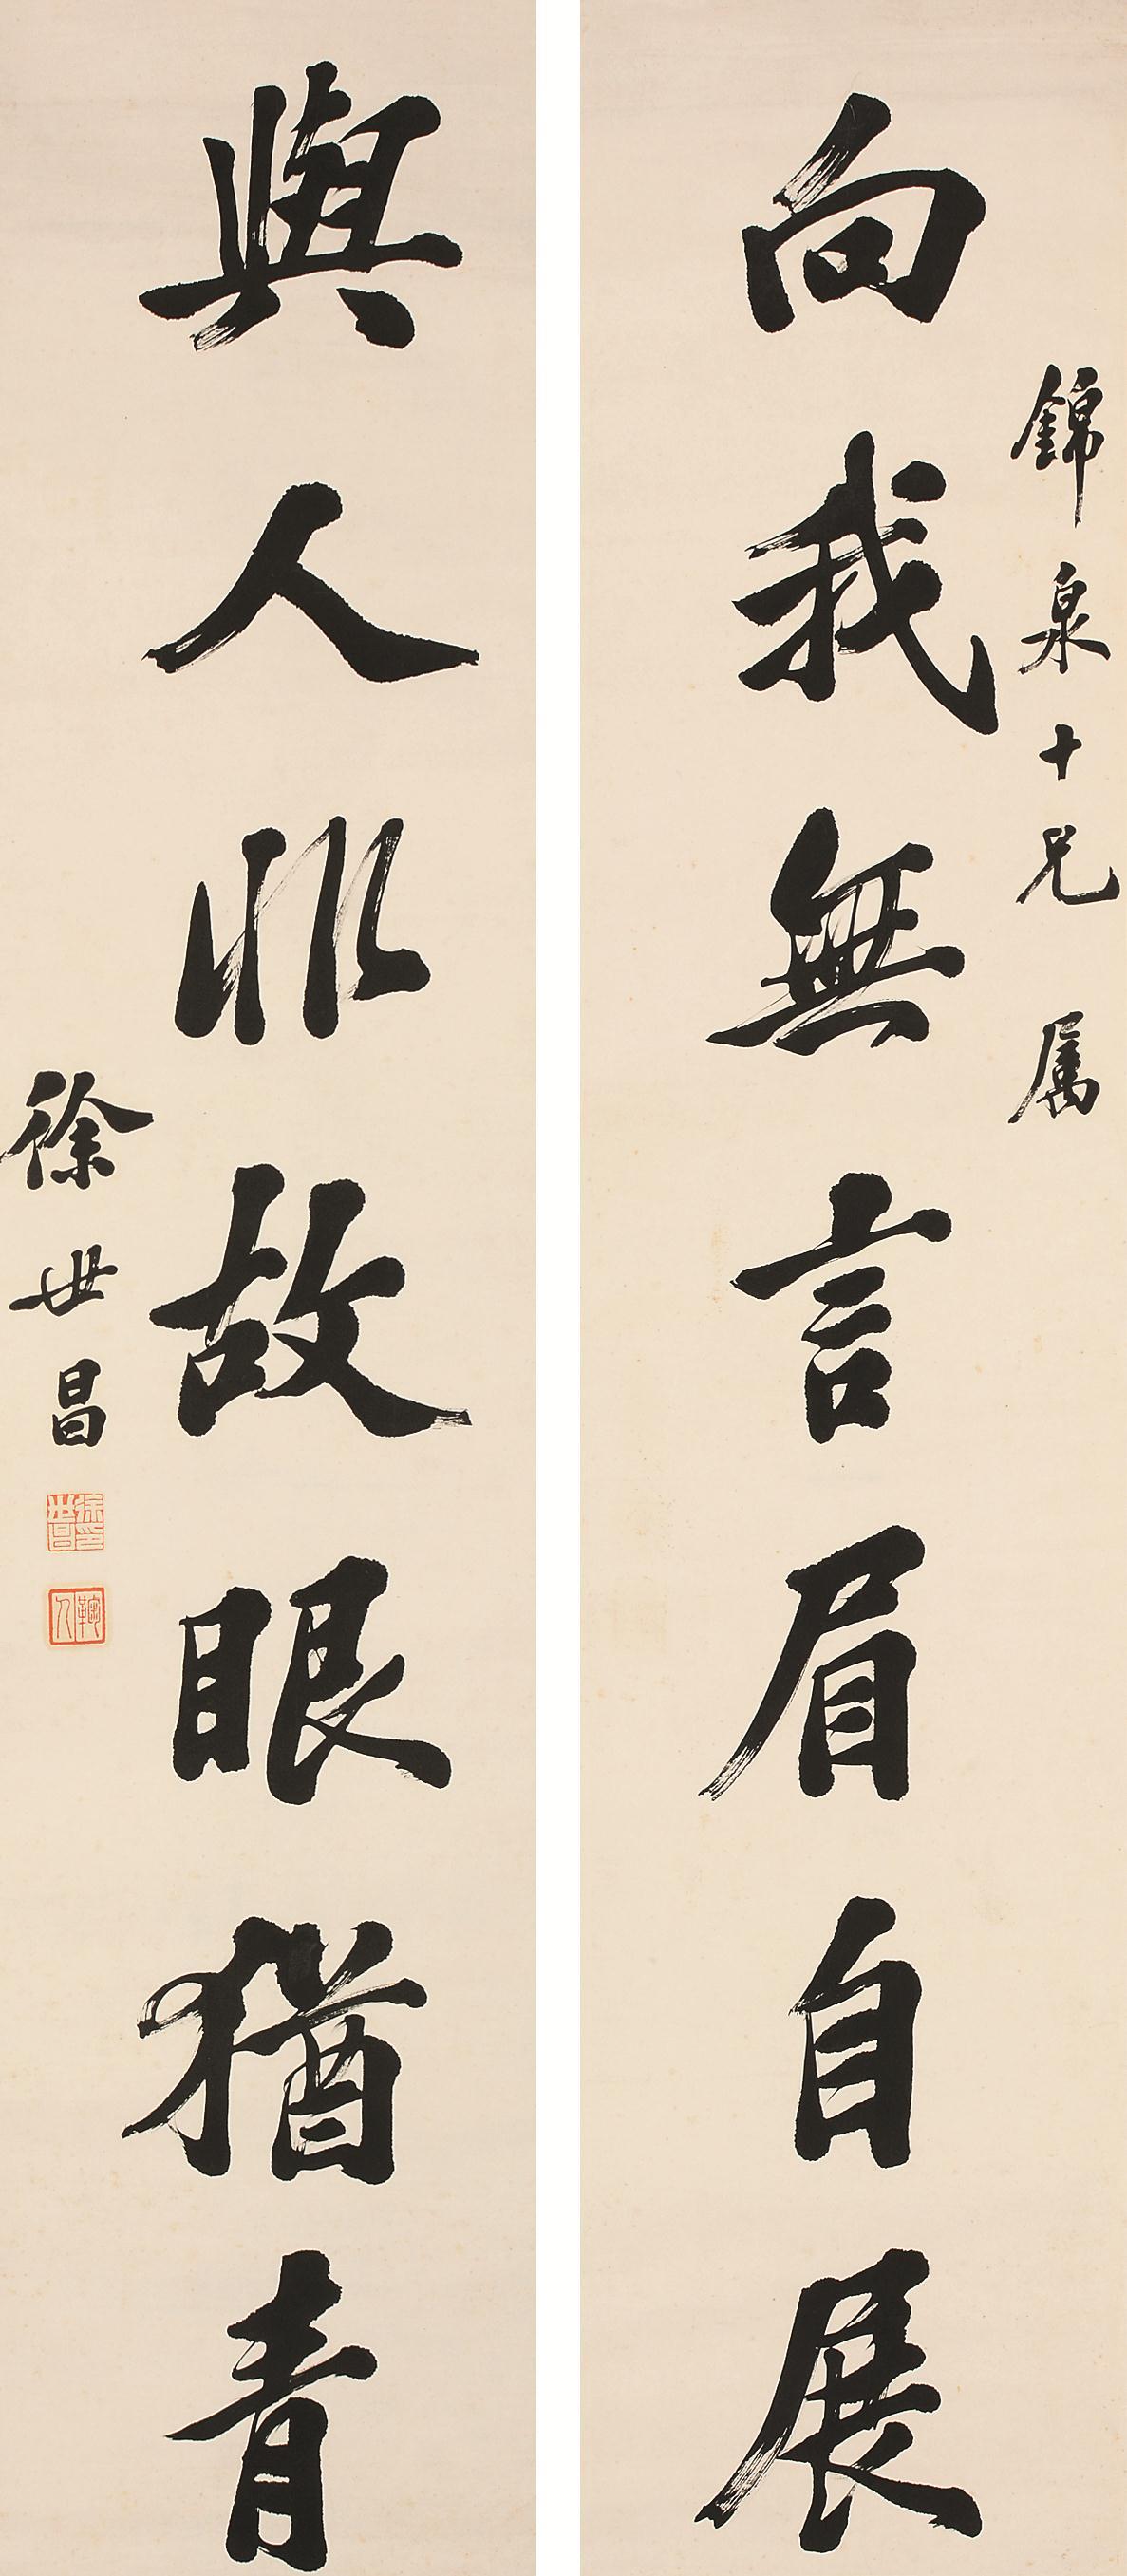 錦泉十兄属
向我無言眉自展
與人非故眼猶青
徐世昌
徐世昌印
鞠人